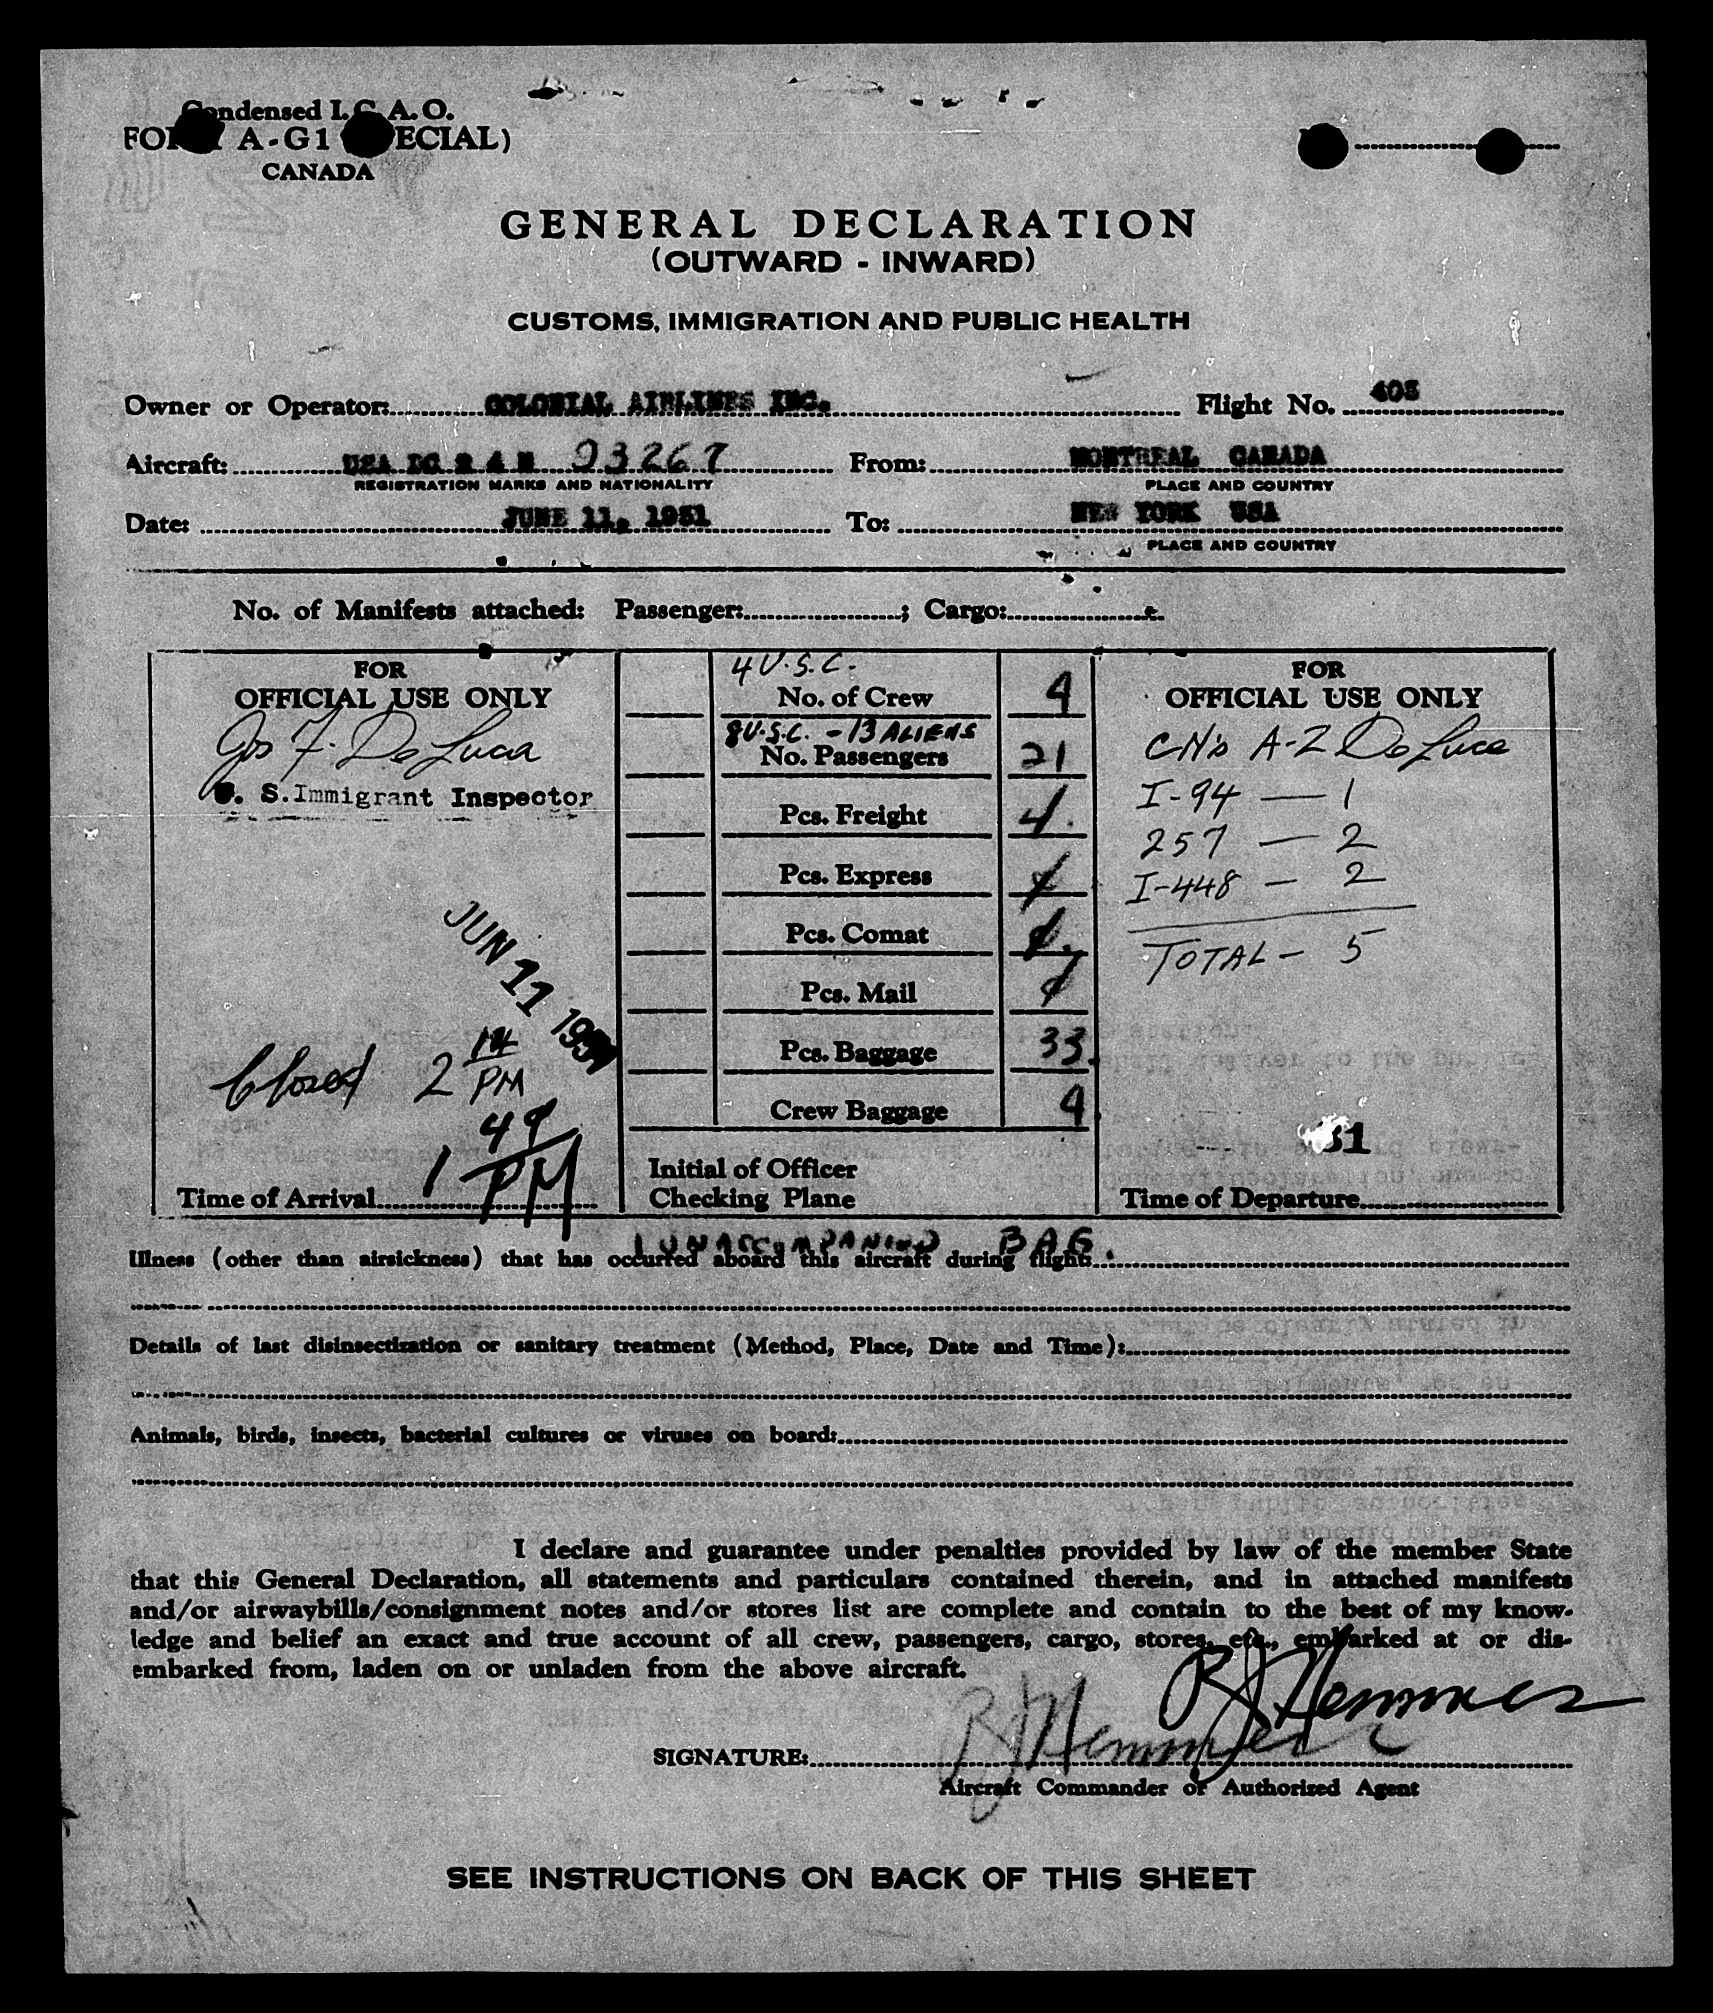 Condensed I.C.A.O.
FORM A-G1 (SPECIAL)
CANADA
GENERAL DECLARATION
(OUTWARD - INWARD)
CUSTOMS, IMMIGRATION AND PUBLIC HEALTH
Owner or Operator: COLONIAL AIRLINES INC. Flight No. 403
Aircraft: USA DC 4 N 93267 From: MONTREAL CANADA
REGISTRATION MARKS AND NATIONALITY PLACE AND COUNTRY
Date: JUNE 11, 1951 To: NEW YORK USA
PLACE AND COUNTRY
No. of Manifests attached: Passenger: ; Cargo:
FOR
OFFICIAL USE ONLY
Jos F. DeLucia
U. S. Immigrant Inspector
JUN 11 1951
Closed 2 14 PM
1 49 PM
Time of Arrival
4 U.S.C.
No. of Crew 4
8 U.S.C. - 13 ALIENS
No. Passengers 21
Pcs. Freight
Pcs. Express
Pcs. Comat
Pcs. Mail
Pcs. Baggage 33
Crew Baggage 4
Initial of Officer
Checking Plane
FOR
OFFICIAL USE ONLY
A-Z
I-94 — 1
257 — 2
I-448 — 2
TOTAL - 5
51
Time of Departure
1 UNACCOMPANIED BAG.
Illness (other than airsickness) that has occurred aboard this aircraft during flight:
Details of last disinsectization or sanitary treatment (Method, Place, Date and Time):
Animals, birds, insects, bacterial cultures or viruses on board:
I declare and guarantee under penalties provided by law of the member State
that this General Declaration, all statements and particulars contained therein, and in attached manifests
and/or airwaybills/consignment notes and/or stores list are complete and contain to the best of my know-
ledge and belief an exact and true account of all crew, passengers, cargo, stores, etc., embarked at or dis-
embarked from, laden on or unladen from the above aircraft.
SIGNATURE:
Aircraft Commander or Authorized Agent
SEE INSTRUCTIONS ON BACK OF THIS SHEET